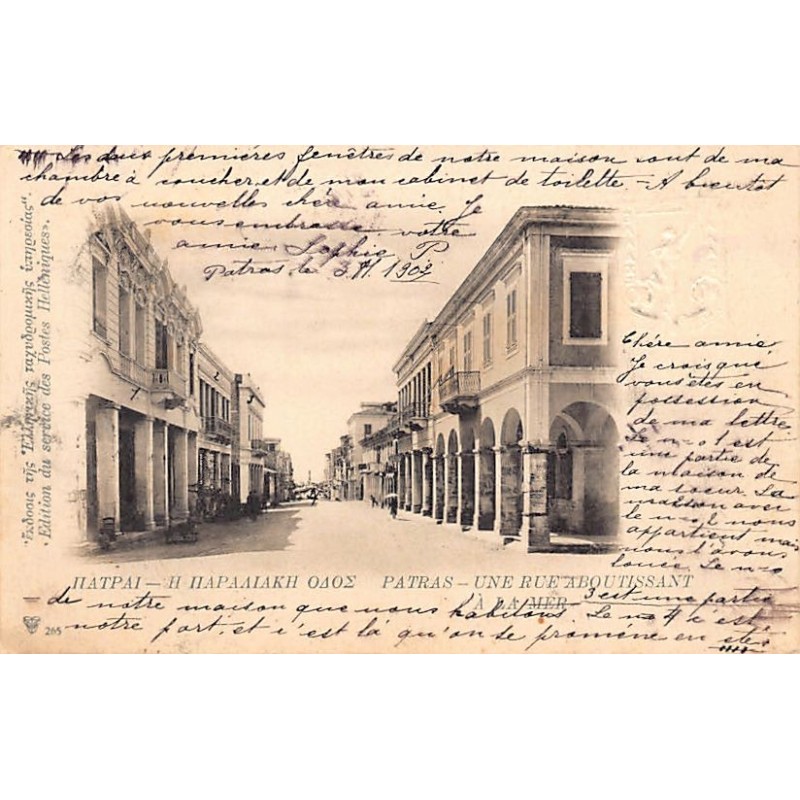 Les deux premières fenêtres de notre maison sont de ma
chambre à coucher et de mon cabinet de toilette - A bientôt
de vos nouvelles chère amie. Je
vous embrasse votre
amie Sophie P
Patras le 3.11. 1902
Chère amie
Je crois que
vous êtes en
possession
de ma lettre
Le no 1 est
une partie de
la maison de
ma soeur. La
maison avec
le no 2 nous
appartient mais
nous l'avons
louée. Le no
3 est une partie
de notre maison que nous habitons. Le no 4 c'est
notre port, et c'est là qu'on se promène en été
ΠΑΤΡΑΙ — Η ΠΑΡΑΛΙΑΚΗ ΟΔΟΣ PATRAS — UNE RUE ABOUTISSANT
À LA MER
265
"Έκδοσις τῆς Ἑλληνικῆς ταχυδρομικῆς ὑπηρεσίας".
«Edition du service des Postes Helléniques».